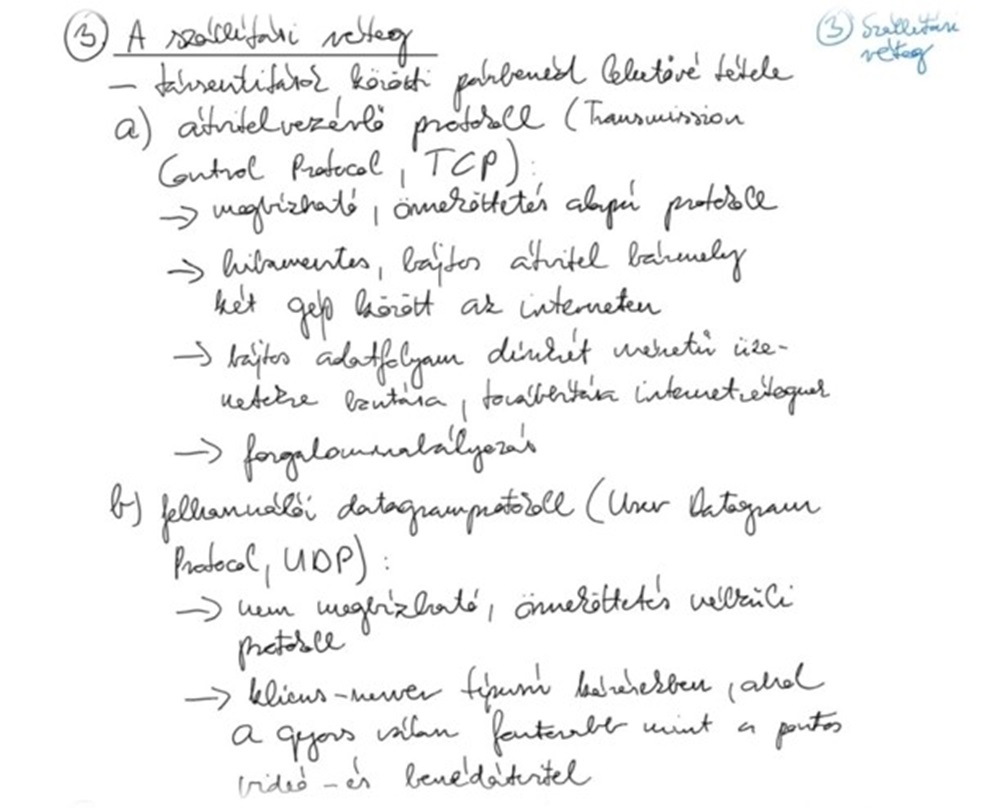 ③ A szállítási réteg
③ Szállítási
réteg
– társentitások közötti párbeszéd lehetővé tétele
a) átvitelvezérlő protokoll (Transmission
Control Protocol, TCP):
→ megbízható, összeköttetés alapú protokoll
→ hibamentes, bájtos átvitel bármely
két gép között az interneten
→ bájtos adatfolyam diszkrét méretű üze-
netekre bontása, továbbítása internetrétegnek
→ forgalomszabályozás
b) felhasználói datagramprotokoll (User Datagram
Protocol, UDP):
→ nem megbízható, összeköttetés nélküli
protokoll
→ kliens-szerver típusú kérésekben, ahol
a gyors válasz fontosabb mint a pontos
videó – és beszédátvitel